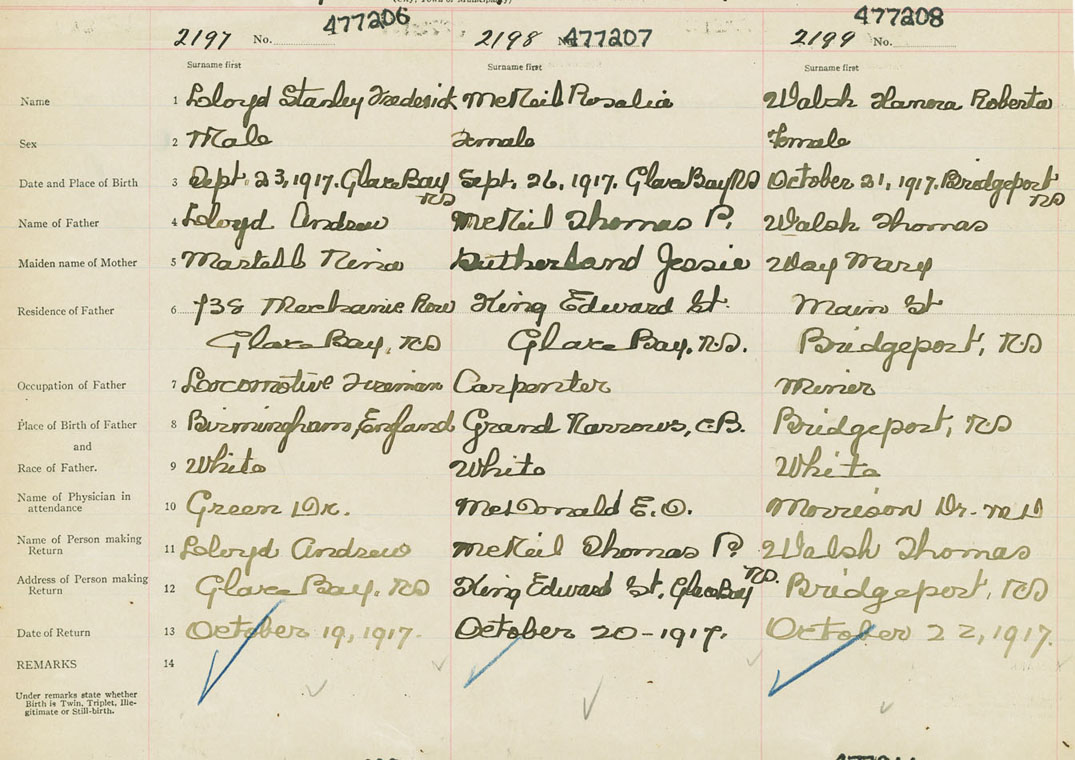 477206 477208
2197 No. 2198 No. 477207 2199 No.
Surname first Surname first Surname first
Name 1 Lloyd Stanley Frederick McNeil Rosalie Walsh Hanora Roberta
Sex 2 Male Female Female
Date and Place of Birth 3 Sept. 23, 1917. Glace Bay NS Sept. 26, 1917. Glace Bay NS October 21, 1917. Bridgeport NS
Name of Father 4 Lloyd Andrew McNeil Thomas P. Walsh Thomas
Maiden name of Mother 5 Martell Nina Sutherland Jessie Way Mary
Residence of Father 6 738 Mechanic Row King Edward St. Main St
Glace Bay, NS Glace Bay, N.S. Bridgeport, NS
Occupation of Father 7 Locomotive Fireman Carpenter Miner
Place of Birth of Father 8 Birmingham, England Grand Narrows, C.B. Bridgeport, NS
and
Race of Father. 9 White White White
Name of Physician in attendance 10 Green Dr. McDonald E.O. Morrison Dr. M D
Name of Person making Return 11 Lloyd Andrew McNeil Thomas P. Walsh Thomas
Address of Person making Return 12 Glace Bay, NS King Edward St. Glace Bay N.S. Bridgeport, NS
Date of Return 13 October 19, 1917. October 20-1917. October 22, 1917.
REMARKS 14
Under remarks state whether
Birth is Twin, Triplet, Ille-
gitimate or Still-birth.